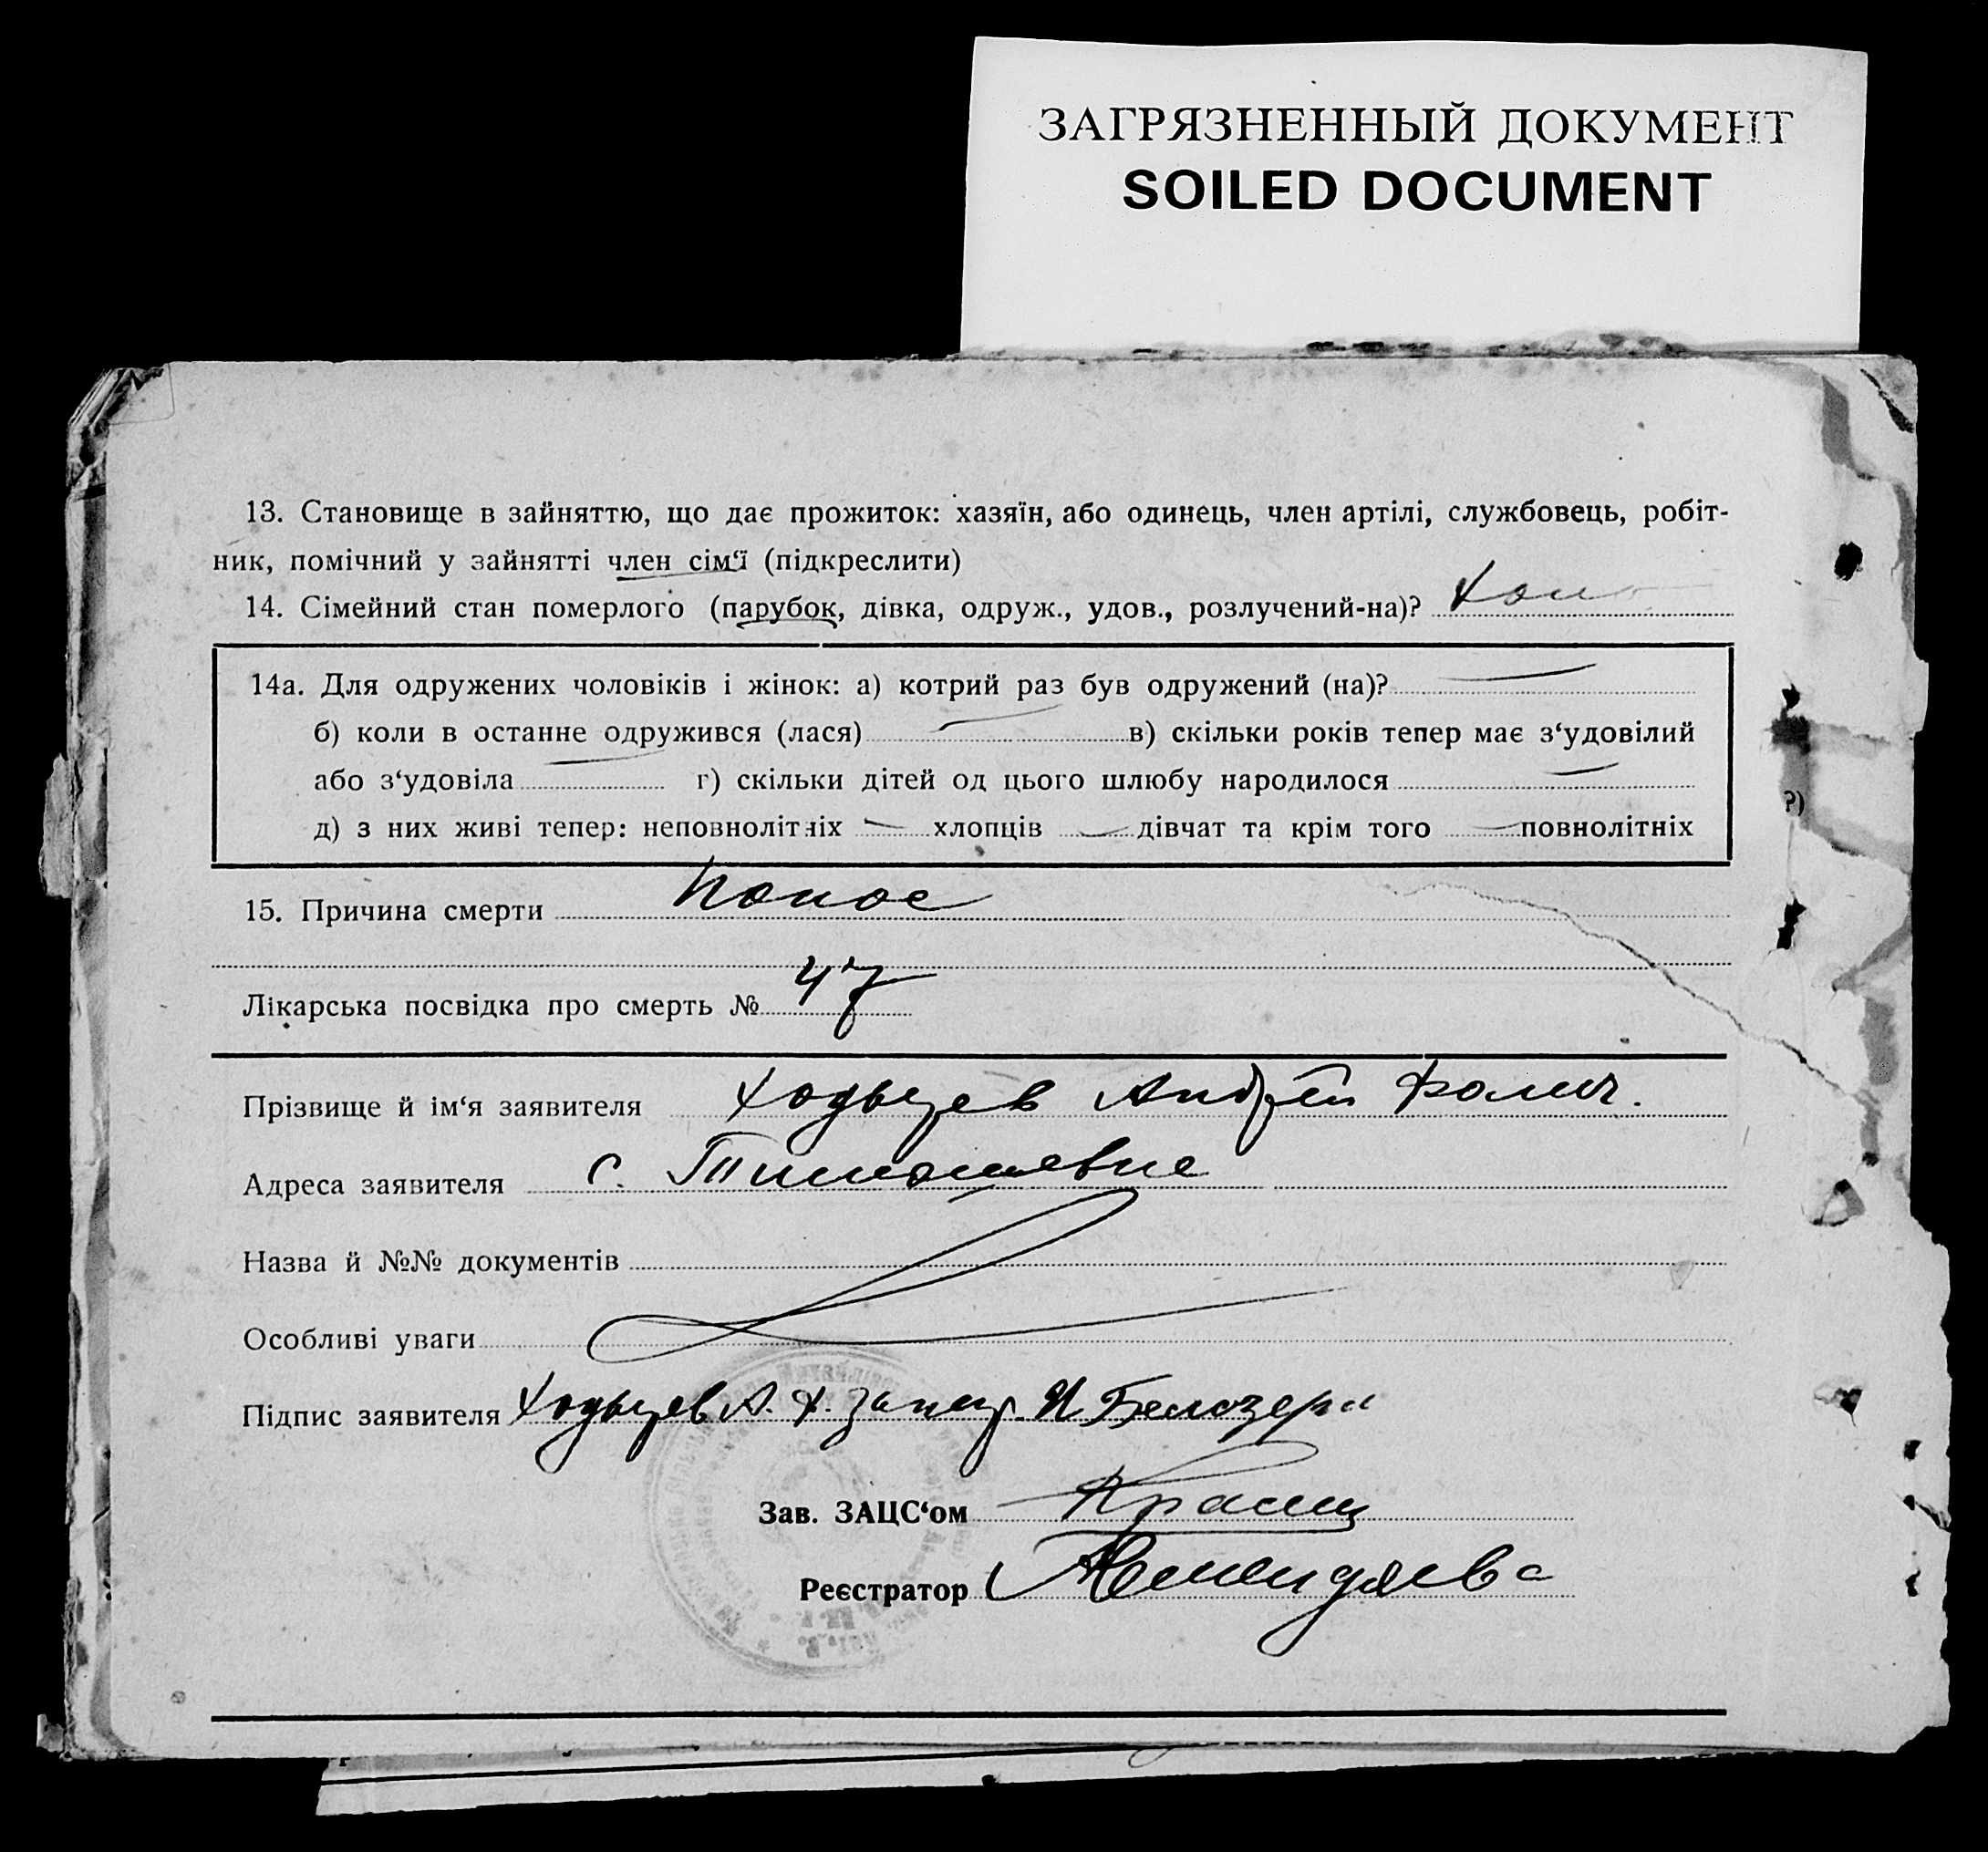 ЗАГРЯЗНЕННЫЙ ДОКУМЕНТ
SOILED DOCUMENT
13. Становище в зайняттю, що дає прожиток: хазяїн, або одинець, член артілі, службовець, робіт-
ник, помічний у зайнятті член сім‘ї (підкреслити)
14. Сімейний стан померлого (парубок, дівка, одруж., удов., розлучений-на)? Хол
14а. Для одружених чоловіків і жінок: а) котрий раз був одружений (на)?
б) коли в останне одружився (лася) в) скільки років тепер має з‘удовілий
або з‘удовіла г) скільки дітей од цього шлюбу народилося
д) з них живі тепер: неповнолітніх хлопців дівчат та крім того повнолітніх
?)
15. Причина смерти Понос
Лікарська посвідка про смерть № 47
Прізвище й ім‘я заявителя Андрей
Адреса заявителя с. Тимошевке
Назва й №№ документів
Особливі уваги
Підпис заявителя А. Х. За негр. И Белозери
Зав. ЗАЦС‘ом
Реєстратор